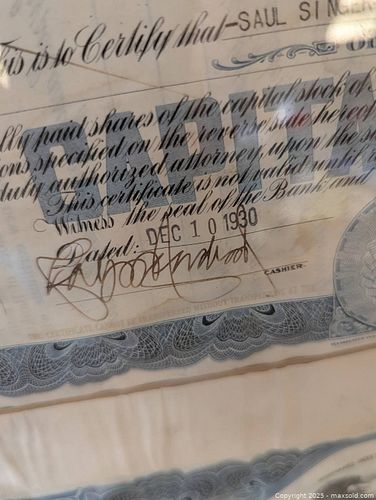 This is to Certify that SAUL SINGER
lly paid shares of the capital stock of
ons specified on the reverse side hereof
duly authorized attorney upon the su
This certificate is not valid until
Witness the seal of the Bank and
Dated: DEC 10 1930
CASHIER.
CAPITA
Copyright 2025 - maxsold.com